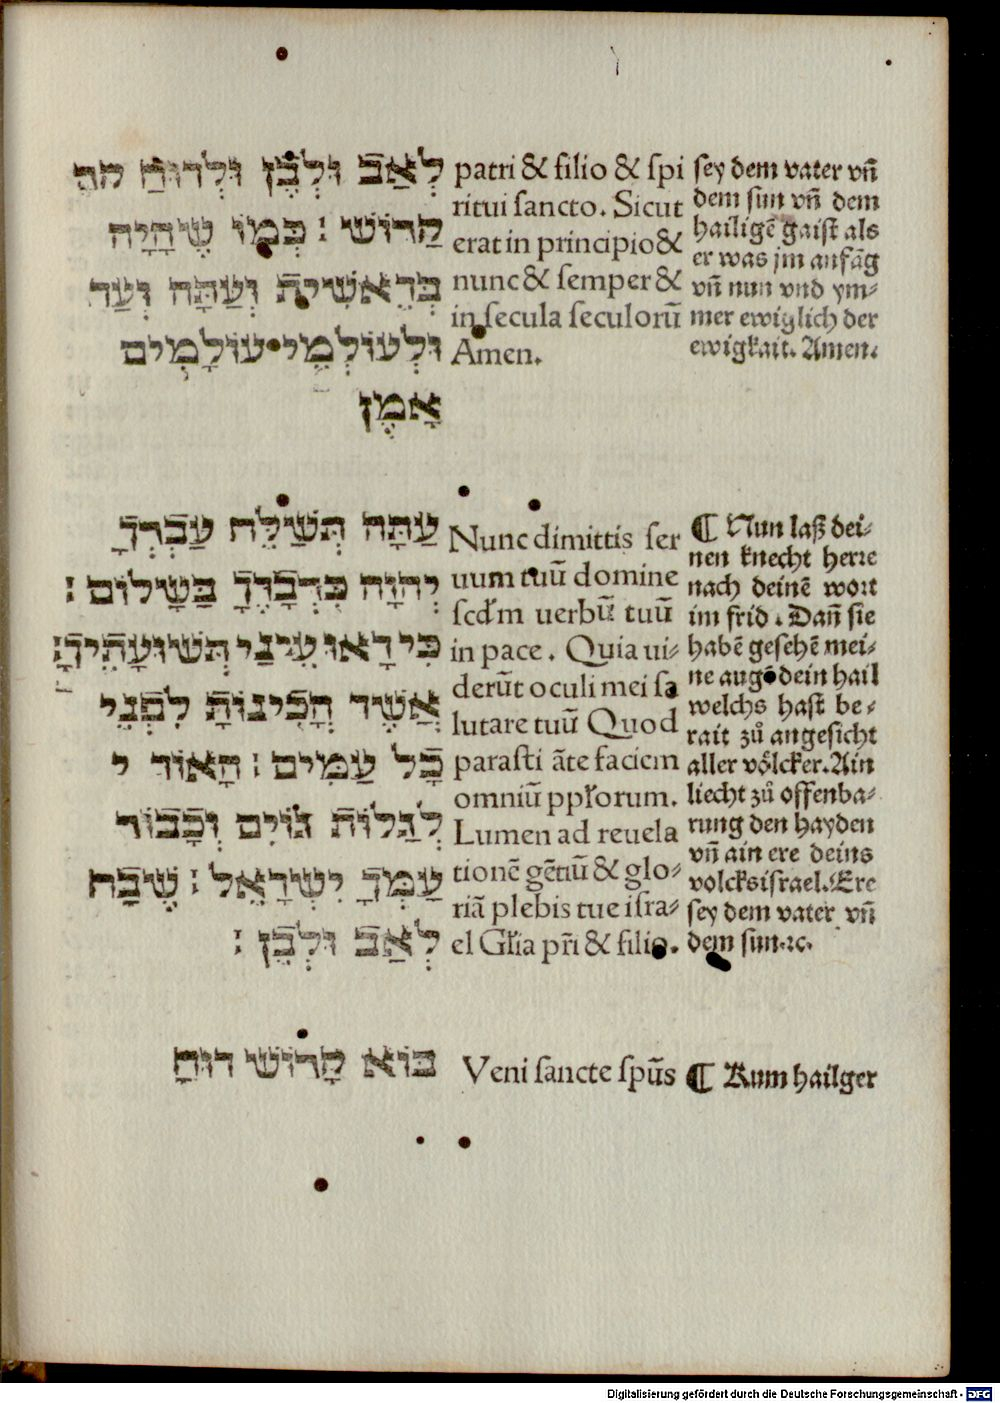 לְאַב וּלְבֶן וּלְרוּחַ הה
קַדוֹש : כְּמוֹ שֶׁהָיָה
בְּרֵאשִׁית וְעַתָּה וְעַד
וּלְעוֹלְמֵי עוֹלָמִים
אָמֶן
patri & filio & ſpi
ritui ſancto. Sicut
erat in principio &
nunc & ſemper &
in ſecula ſeculorū
Amen.
ſey dem vater vñ
dem ſun vñ dem
hailigē gaiſt als
er was jm anfāg
vñ nun vnd ym⸗
mer ewiglich der
ewigkait. Amen.
עַתָּה תְּשַׁלֵּח עַבְדְּךָ
יְהוָה כִּדְבָרֶךָ בַּשָׁלוֹם :
כִּי רָאוּ עֵינַי תְּשׁוּעָתֶיךָ :
אֲשֶׁר הֲכִינוֹתָ לִפְנֵי
כָּל עַמִים : הָאוֹר י
לְגַלוֹת גוֹיִם וְכָבוֹד
עַמְךָ יִשְׂרָאֵל : שֶׁבַח
לְאַב וּלְבֶן :
Nunc dimittis ſer
uum tuū domine
ſcďm uerbū tuū
in pace. Quia ui⸗
derūt oculi mei ſa
lutare tuū Quod
paraſti āte faciem
omniū pplorum.
Lumen ad reuela
tionē gētiū & glo⸗
riā plebis tue iſra⸗
el Glia pr̄i & filio.
¶ Nun laß dei⸗
nen knecht herre
nach deinē wort
im frid. Dañ ſie
habē geſehē mei⸗
ne augē dein hail
welchs haſt be⸗
rait zů angeſicht
aller voͤlcker. Ain
liecht zů offenba⸗
rung den hayden
vñ ain ere deins
volcks iſrael. Ere
ſey dem vater vñ
dem ſun ⁊c.
בּוֹא קָדוֹש רוּחַ
Veni ſancte ſpūs
¶ Kum hailger
Digitalisierung gefördert durch die Deutsche Forschungsgemeinschaft - DFG